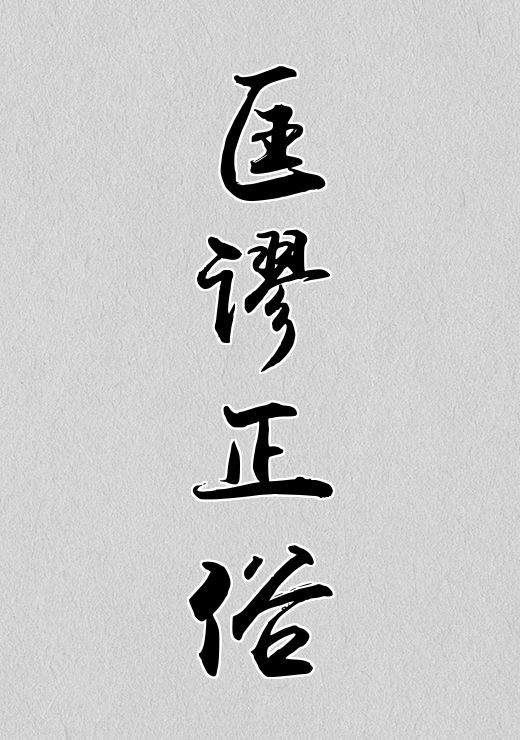 匡谬正俗